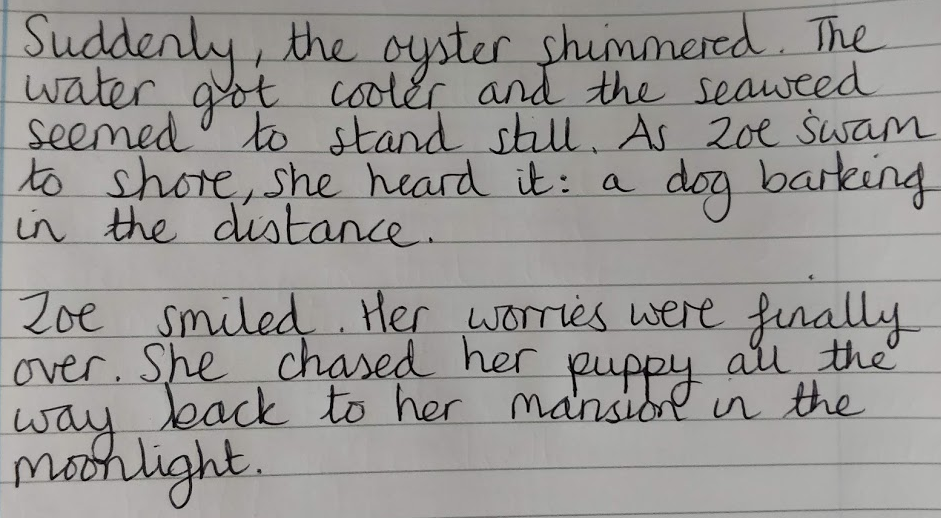 Suddenly, the oyster shimmered. The
water got cooler and the seaweed
seemed to stand still. As Zoe swam
to shore, she heard it: a dog barking
in the distance.
Zoe smiled. Her worries were finally
over. She chased her puppy all the
way back to her mansion in the
moonlight.